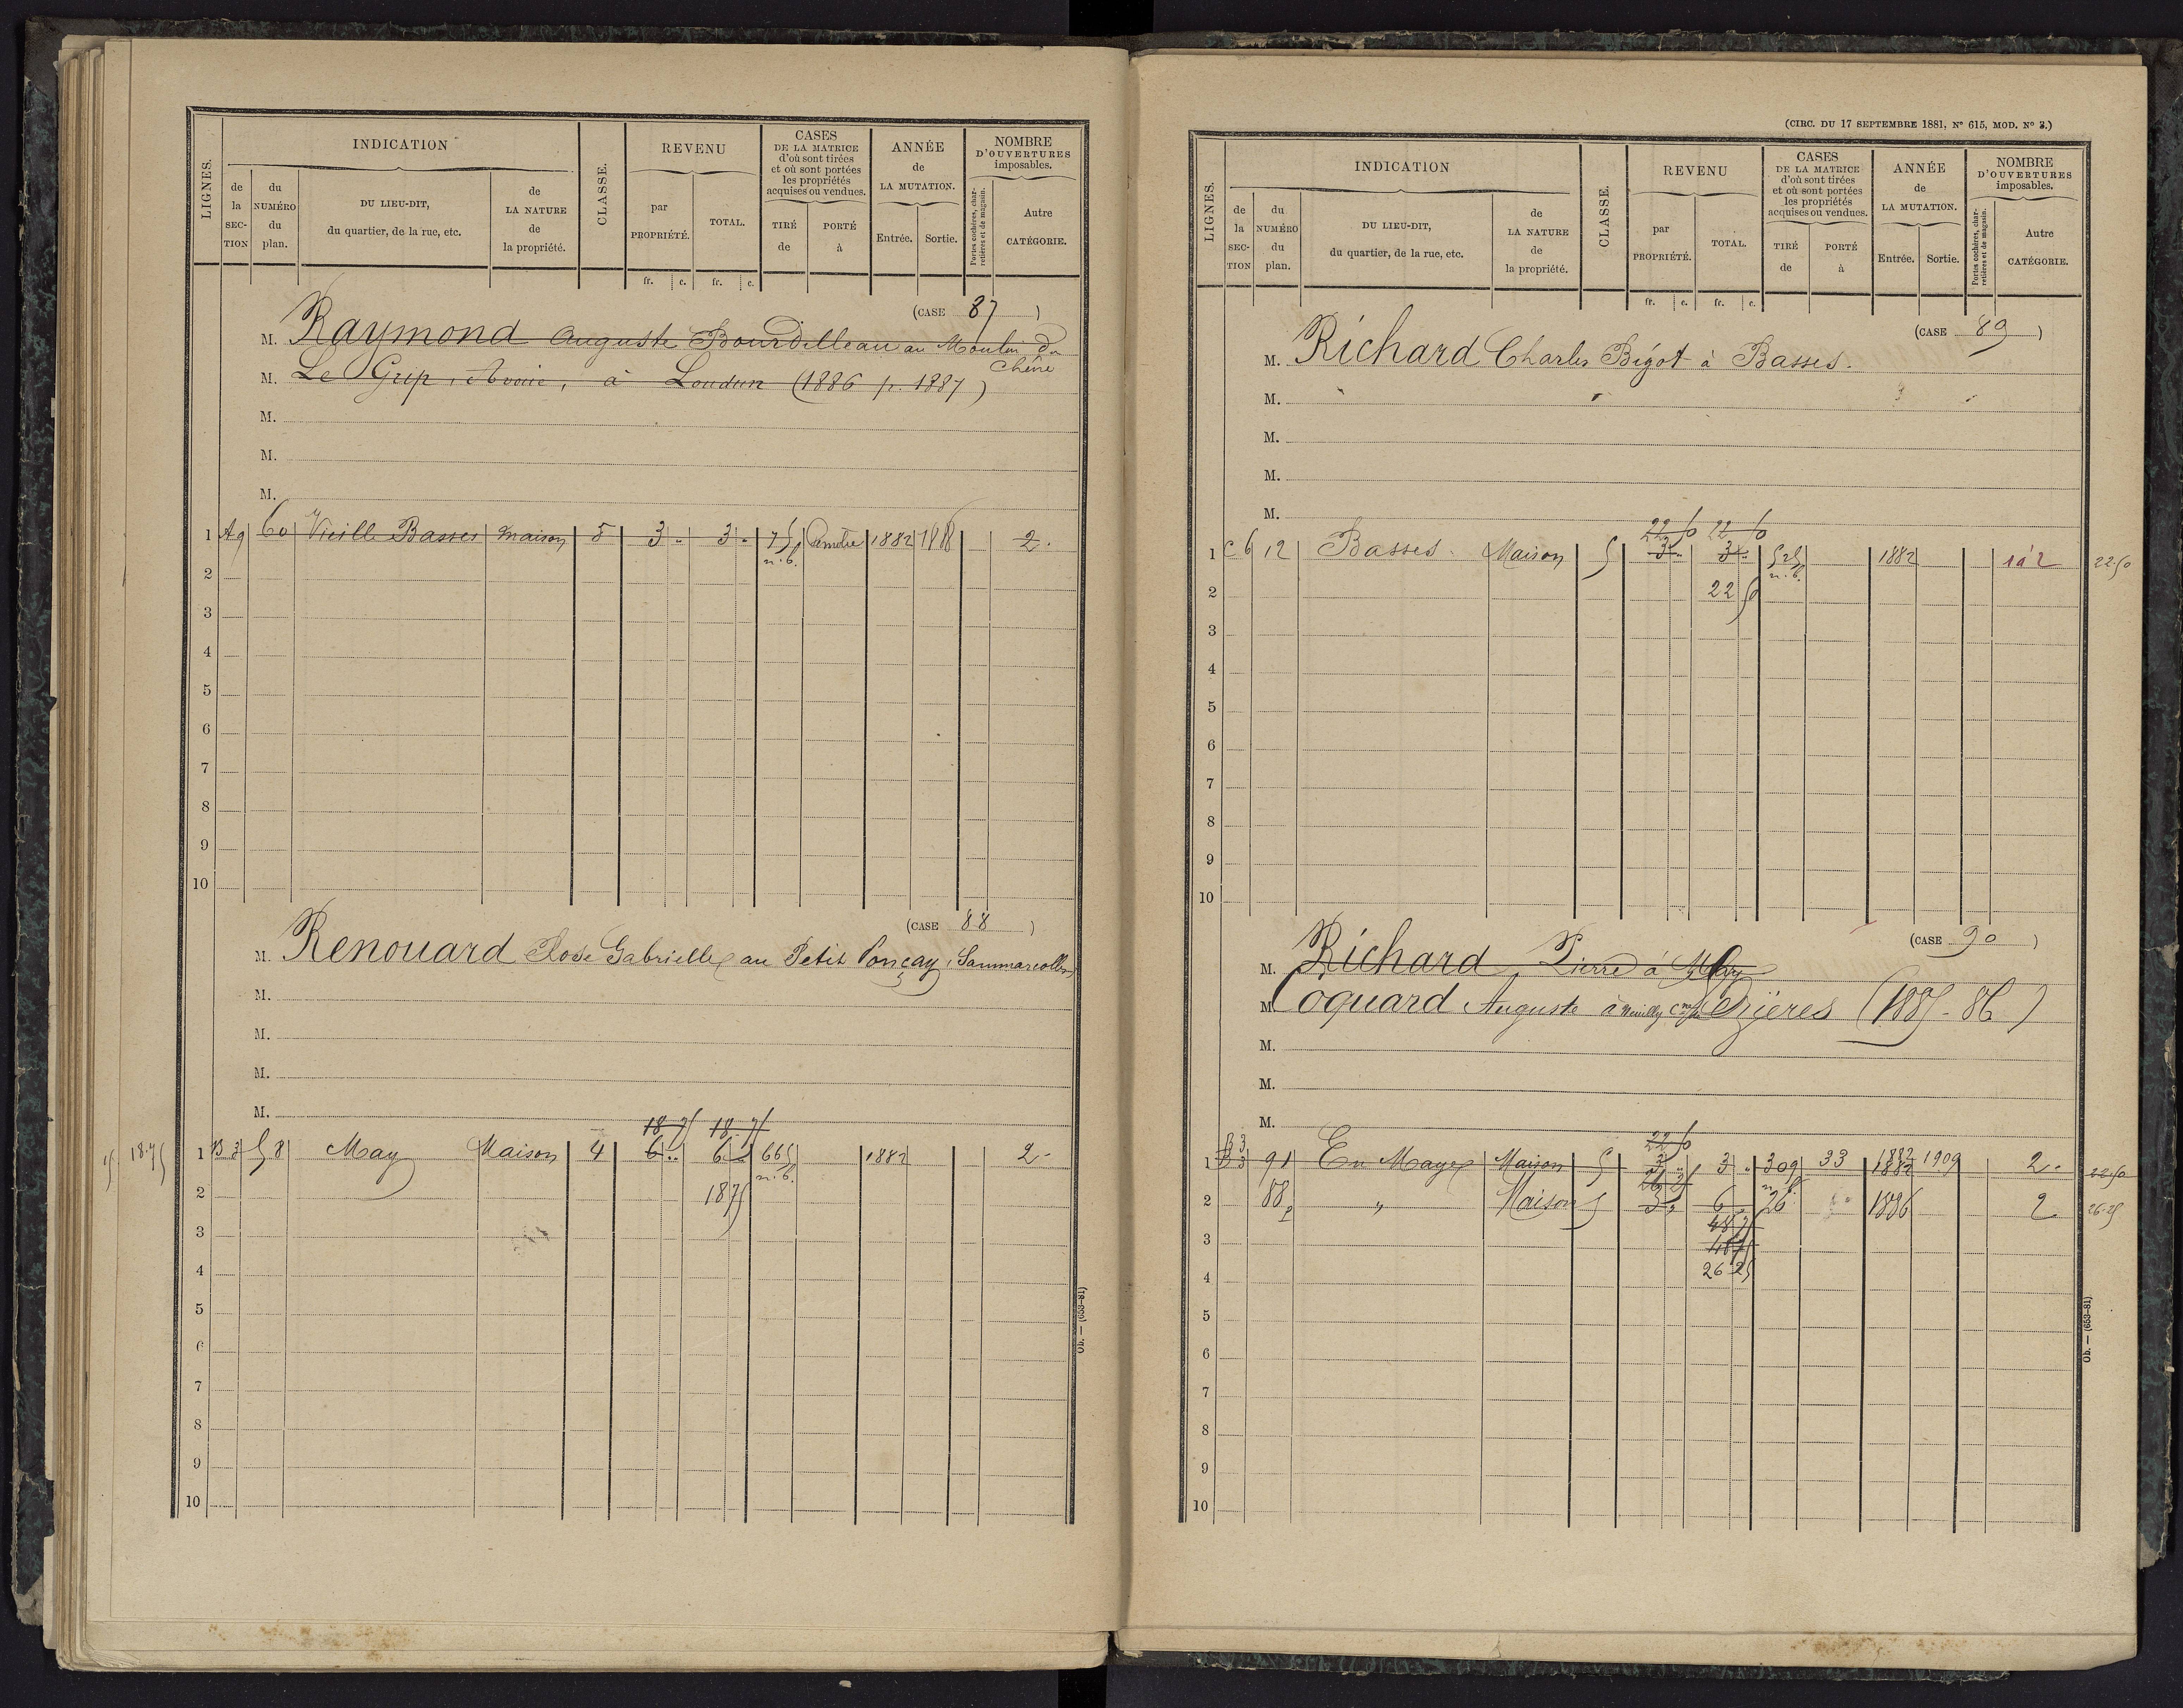 INDICATION
LIGNES.
de la SECTION
du NUMÉRO du plan.
DU LIEU-DIT, du quartier, de la rue, etc.
de LA NATURE de la propriété.
CLASSE.
REVENU
par PROPRIÉTÉ.
TOTAL.
fr. c. fr. c.
CASES DE LA MATRICE d'où sont tirées et où sont portées les propriétés acquises ou vendues.
TIRÉ de
PORTÉ à
ANNÉE de LA MUTATION.
Entrée. Sortie.
NOMBRE D'OUVERTURES imposables.
Portes cochères, charretières et de magasin.
Autre CATÉGORIE.
(CASE 87)
M. Raymond Auguste Bourdilleau au Moulin du Chêne
M. Le Grip, à Loudun (1886 p. 1887)
M.
M.
M.
1 A9 60 Vieille Basses maison 5 3 " 3 " 1882 2 "
n. b.
2
3
4
5
6
7
8
9
10
(CASE 88)
M. Renouard Rose Gabrielle au Petit Ponçay, Sammarcolles
M.
M.
M.
M.
18 75 18 75
18.75 1 B3 58 May Maison 4 6 " 6 " 665 1882 2 "
n. b.
2 18 75
3
4
5
6
7
8
9
10
Ob. — (653-81)
(CIRC. DU 17 SEPTEMBRE 1881, N° 615, MOD. N° 3.)
INDICATION
LIGNES.
de la SECTION
du NUMÉRO du plan.
DU LIEU-DIT, du quartier, de la rue, etc.
de LA NATURE de la propriété.
CLASSE.
REVENU
par PROPRIÉTÉ.
TOTAL.
fr. c. fr. c.
CASES DE LA MATRICE d'où sont tirées et où sont portées les propriétés acquises ou vendues.
TIRÉ de
PORTÉ à
ANNÉE de LA MUTATION.
Entrée. Sortie.
NOMBRE D'OUVERTURES imposables.
Portes cochères, charretières et de magasin.
Autre CATÉGORIE.
(CASE 89)
M. Richard Charles Bigot à Basses.
M.
M.
M.
M.
22 50 22 50
1 C6 12 Basses. Maison 5 3 " 3 " 525 1882 1 à 2 22.50
n. b.
2 22 50
3
4
5
6
7
8
9
10
(CASE 90)
M. Richard, Pierre à May
M. Coquard Auguste à Neuilly Cne de Cezières (1885-86)
M.
M.
M.
B3 22 50
1 B3 91 En Mayes Maison 5 3 " 3 " 309 33 1882 1882 1909 2 " 22.50
26 25 n. b.
2 88p " Maison 5 3 " 6 " 26 1886 2 26.25
48 75
3 48 75
26 25
4
5
6
7
8
9
10
Ob. — (653-81)